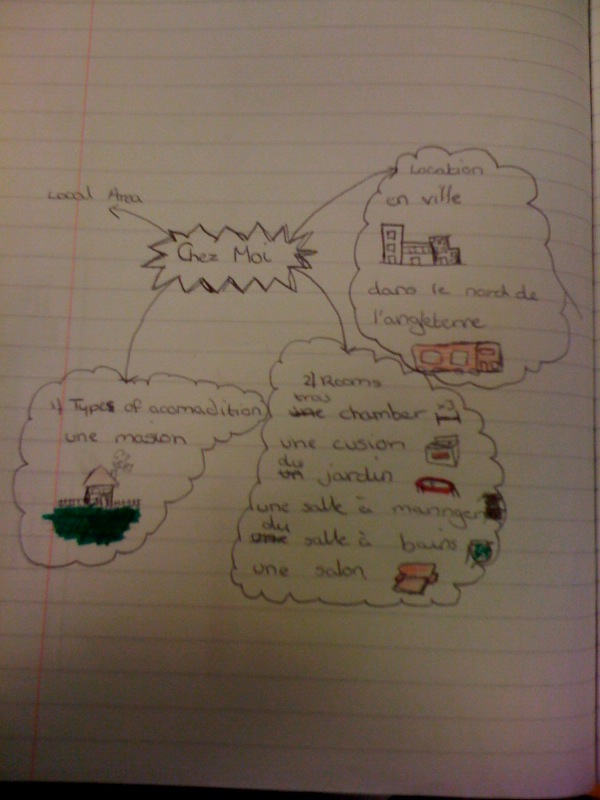 Local Area
Chez Moi
Location
en ville
dans le nord de
l'angleterre
1) Types of acomadition
une masion
2) Rooms
tras
une chamber
une cusion
du
un jardin
une salle à mannger
du
une salle à bains
une salon